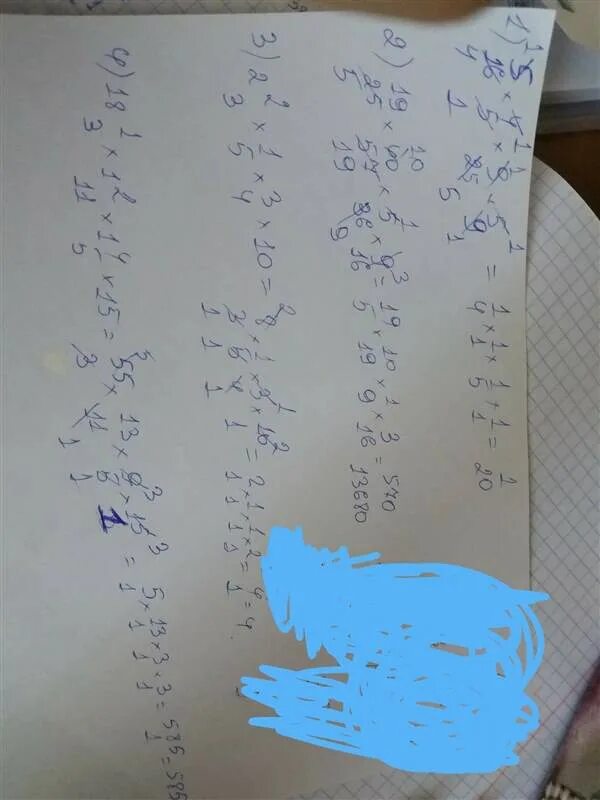 1) 5/16 × 4/5 × 9/25 × 5/9 = 1/4 × 1/1 × 1/5 × 1/1 = 1/20
2) 19/25 × 10/57 × 5/36 × 9/16 = 19/5 × 10/19 × 1/9 × 3/16 = 570/13680
3) 2 2/3 × 1/5 × 3/4 × 10 = 8/3 × 1/5 × 3/4 × 10/1 = 2/1 × 1/1 × 1/1 × 2/1 = 4/1 = 4.
4) 18 1/3 × 1 2/11 × 1 4/5 × 15 = 55/3 × 13/11 × 9/5 × 15/1 = 5/1 × 13/1 × 3/1 × 3/1 = 585/1 = 585